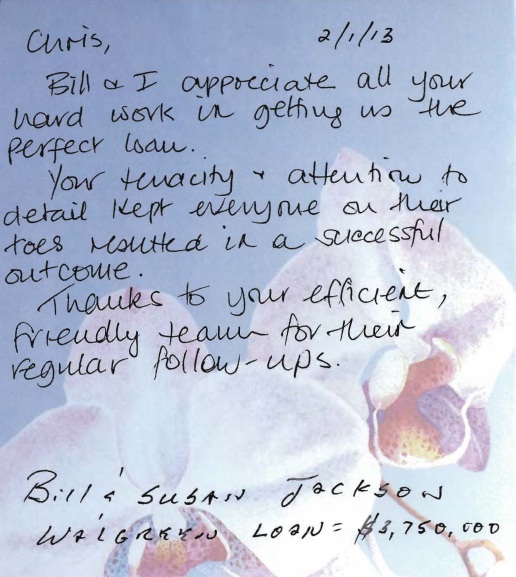 Chris, 2/1/13
Bill & I appreciate all your
hard work in getting us the
perfect loan.
Your tenacity & attention to
detail kept everyone on their
toes resulted in a successful
outcome.
Thanks to your efficient,
friendly team for their
regular follow-ups.
Bill & SUSAN JACKSON
WALGREEN LOAN = $3,750,000